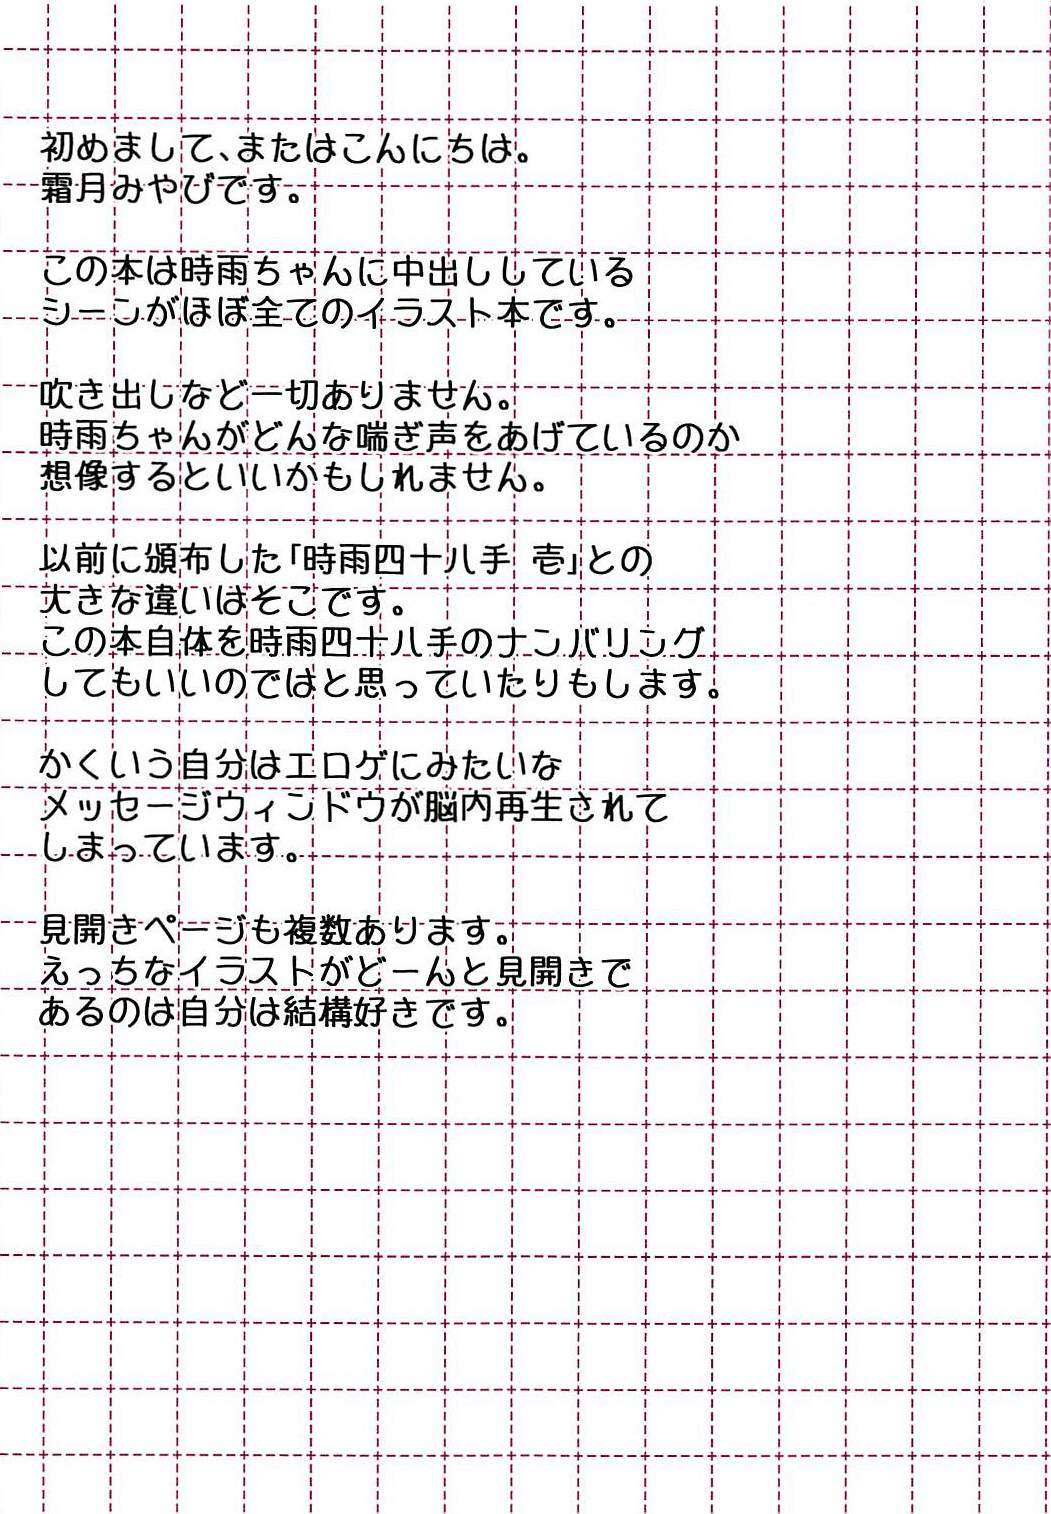 初めまして、またはこんにちは。
霜月みやびです。
この本は時雨ちゃんに中出ししている
シーンがほぼ全てのイラスト本です。
吹き出しなど一切ありません。
時雨ちゃんがどんな喘ぎ声をあげているのか
想像するといいかもしれません。
以前に頒布した「時雨四十八手 壱」との
大きな違いはそこです。
この本自体を時雨四十八手のナンバリング
してもいいのではと思っていたりもします。
かくいう自分はエロゲにみたいな
メッセージウィンドウが脳内再生されて
しまっています。
見開きページも複数あります。
えっちなイラストがどーんと見開きで
あるのは自分は結構好きです。